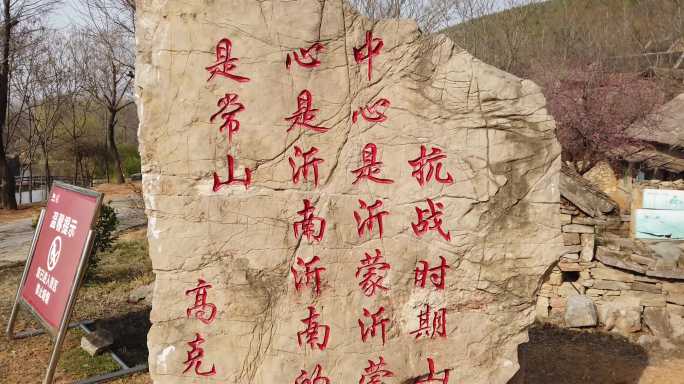 抗战时期山
中心是沂蒙沂蒙
心是沂南沂南的
是常山
高克
温馨提示